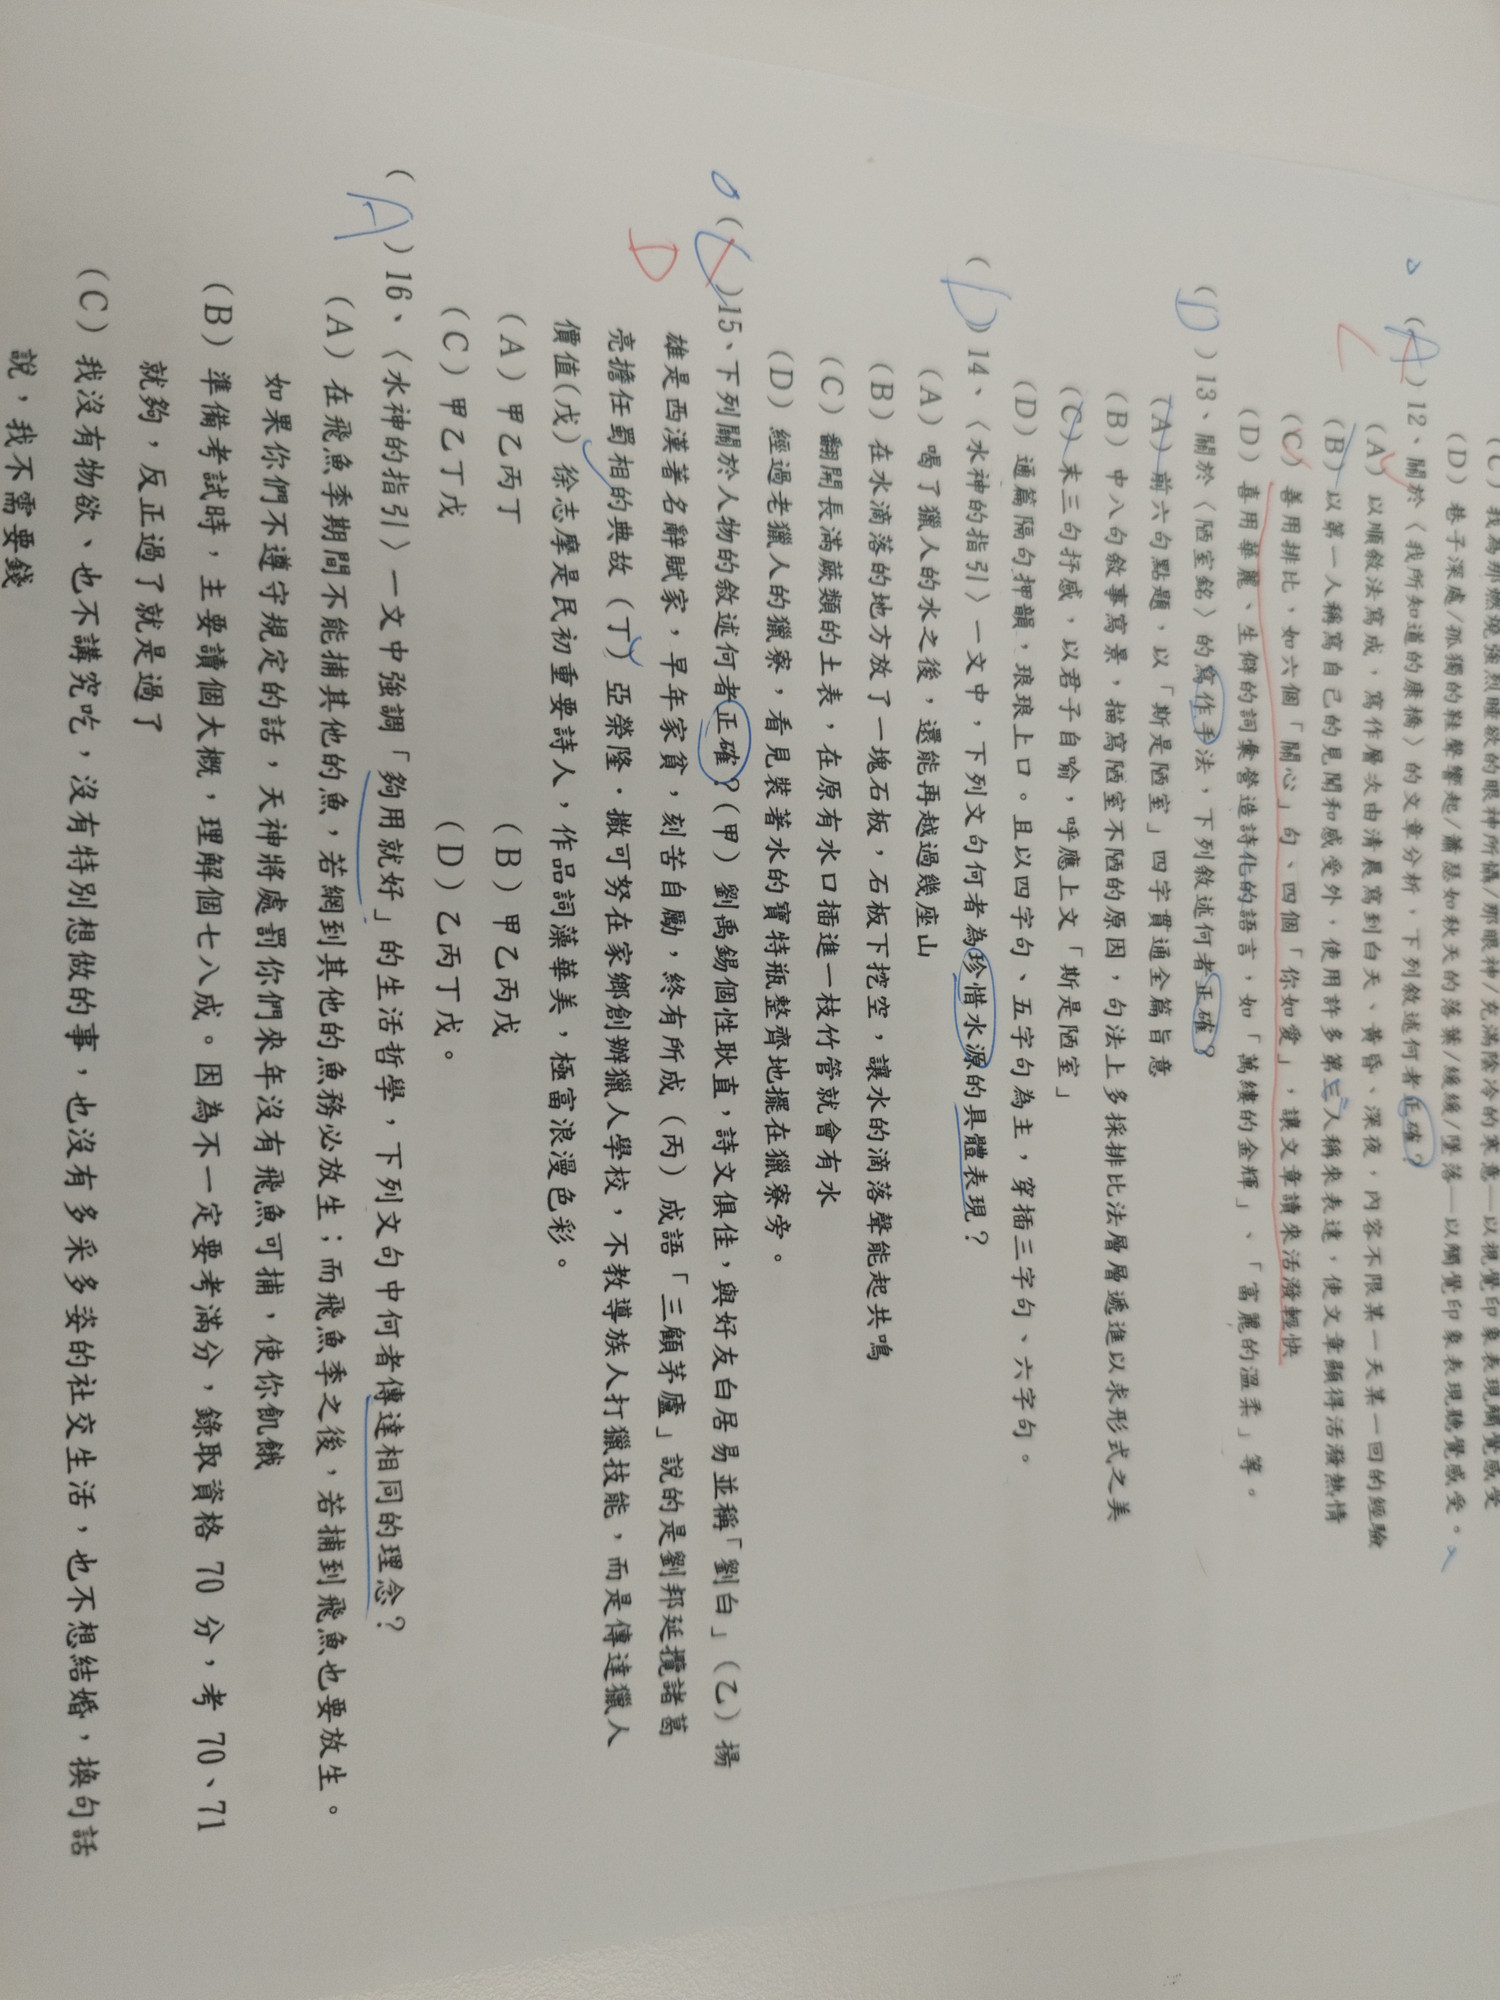 (C) 我為那燃燒強烈瞳欲的眼神所懾/那眼神/充滿陰冷的寒意—以視覺印象表現觸覺感受
(D) 巷子深處/孤獨的鞋聲響起/蕭瑟如秋天的落葉/緩緩/墜落—以觸覺印象表現聽覺感受。
(A) 12、關於〈我所知道的康橋〉的文章分析，下列敘述何者正確?
C
(A) 以順敘法寫成，寫作層次由清晨寫到白天、黃昏、深夜，內容不限某一天某一回的經驗
(B) 以第一人稱寫自己的見聞和感受外，使用許多第三人稱來表達，使文章顯得活潑熱情
二
(C) 善用排比，如六個「關心」句、四個「你如愛」，讓文章讀來活潑輕快
(D) 喜用華麗、生僻的詞彙營造詩化的語言，如「萬縷的金輝」、「富麗的溫柔」等。
(D) 13、關於〈陋室銘〉的寫作手法，下列敘述何者正確?
(A) 前六句點題，以「斯是陋室」四字貫通全篇旨意
(B) 中八句敘事寫景，描寫陋室不陋的原因，句法上多採排比法層層遞進以求形式之美
(C) 末三句抒感，以君子自喻，呼應上文「斯是陋室」
(D) 通篇隔句押韻，琅琅上口。且以四字句、五字句為主，穿插三字句、六字句。
(D) 14、〈水神的指引〉一文中，下列文句何者為珍惜水源的具體表現?
(A) 喝了獵人的水之後，還能再越過幾座山
(B) 在水滴落的地方放了一塊石板，石板下挖空，讓水的滴落聲能起共鳴
(C) 翻開長滿蕨類的土表，在原有水口插進一枝竹管就會有水
(D) 經過老獵人的獵寮，看見裝著水的寶特瓶整齊地擺在獵寮旁。
( )15、下列關於人物的敘述何者正確?(甲) 劉禹錫個性耿直，詩文俱佳，與好友白居易並稱「劉白」(乙) 揚
D
雄是西漢著名辭賦家，早年家貧，刻苦自勵，終有所成 (丙) 成語「三顧茅廬」說的是劉邦延攬諸葛
亮擔任蜀相的典故 (丁) 亞榮隆·撒可努在家鄉創辦獵人學校，不教導族人打獵技能，而是傳達獵人
價值(戊) 徐志摩是民初重要詩人，作品詞藻華美，極富浪漫色彩。
(A) 甲乙丙丁 (B) 甲乙丙戊
(C) 甲乙丁戊 (D) 乙丙丁戊。
(A) 16、〈水神的指引〉一文中強調「夠用就好」的生活哲學，下列文句中何者傳達相同的理念?
(A) 在飛魚季期間不能捕其他的魚，若網到其他的魚務必放生；而飛魚季之後，若捕到飛魚也要放生。
如果你們不遵守規定的話，天神將處罰你們來年沒有飛魚可捕，使你飢餓
(B) 準備考試時，主要讀個大概，理解個七八成。因為不一定要考滿分，錄取資格 70 分，考 70、71
就夠，反正過了就是過了
(C) 我沒有物欲、也不講究吃，沒有特別想做的事，也沒有多采多姿的社交生活，也不想結婚，換句話
說，我不需要錢